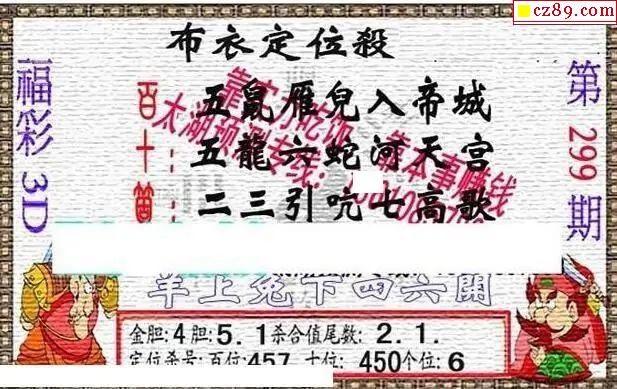 cz89.com
布衣定位殺
福彩 3D
第 299 期
百十
五鼠雁兒入帝城
五龍六蛇河天宫
二三引吭七高歌
太湖预测专线:
靠本事赚钱
羊上兔下四六開
金胆:4胆:5.1杀合值尾数:2.1.
定位杀号:百位:457 十位:450个位:6